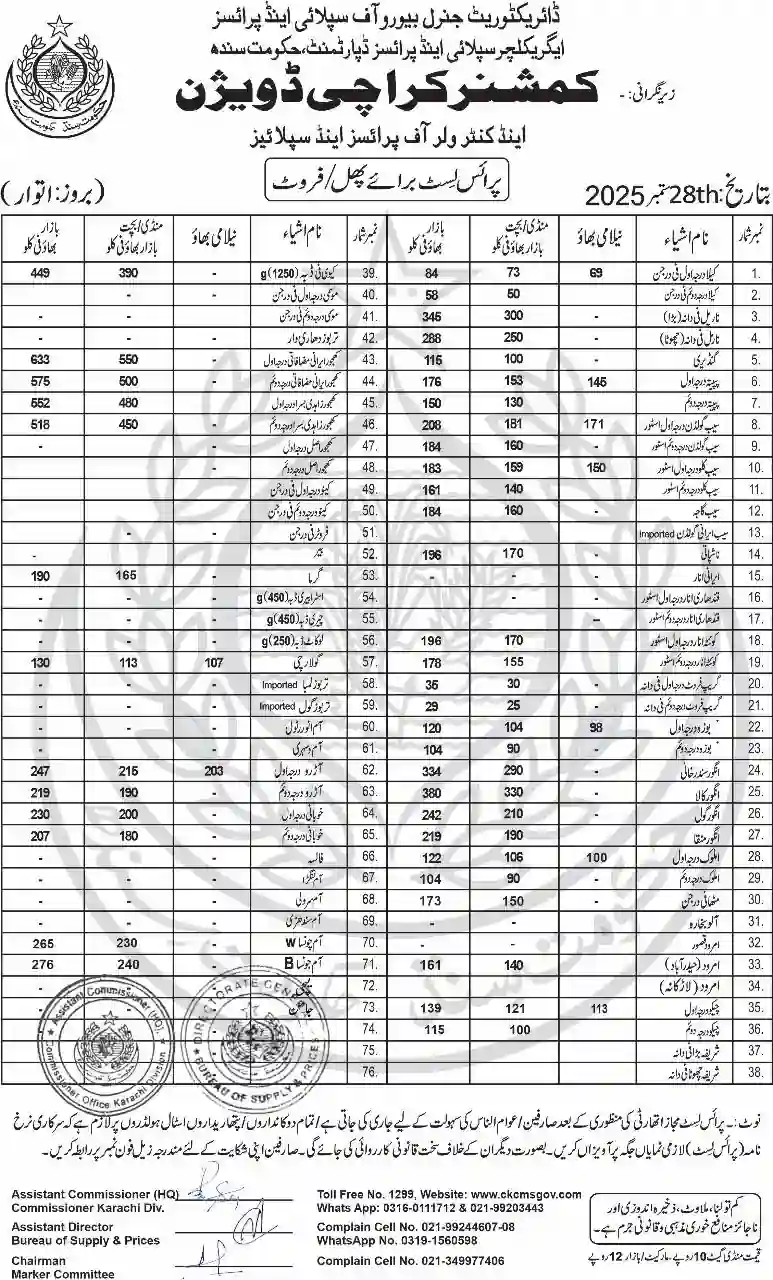 ڈائریکٹوریٹ جنرل بیورو آف سپلائی اینڈ پرائسز
ایگریکلچر سپلائی اینڈ پرائسز ڈپارٹمنٹ، حکومت سندھ
زیر نگرانی :- کمشنر کراچی ڈویژن
اینڈ کنٹرولر آف پرائسز اینڈ سپلائیز
پرائس لسٹ برائے پھل / فروٹ
بتاریخ: 28th ستمبر 2025
(بروز: اتوار)
نمبر شمار نام اشیاء نیلامی بھاؤ منڈی/بچت بازار بھاؤ فی کلو بازار بھاؤ فی کلو
1. کیلا درجہ اول فی درجن 69 73 84
2. کیلا درجہ دوئم فی درجن - 50 58
3. ناریل فی دانہ (بڑا) - 300 345
4. ناریل فی دانہ (چھوٹا) - 250 288
5. گنڈیری - 100 115
6. پپیتہ درجہ اول 145 153 176
7. پپیتہ درجہ دوئم - 130 150
8. سیب گولڈن درجہ اول اسٹور 171 181 208
9. سیب گولڈن درجہ دوئم اسٹور - 160 184
10. سیب کلو درجہ اول اسٹور 150 159 183
11. سیب کلو درجہ دوئم اسٹور - 140 161
12. سیب گاچہ - 160 184
13. سیب ایرانی گولڈن Imported
14. ناشپاتی - 170 196
15. ایرانی انار - - -
16. قندھاری انار درجہ اول اسٹور
17. قندھاری انار درجہ دوئم اسٹور -
18. کوئٹہ انار درجہ اول اسٹور - 170 196
19. کوئٹہ انار درجہ دوئم اسٹور - 155 178
20. گریپ فروٹ درجہ اول فی دانہ - 30 35
21. گریپ فروٹ درجہ دوئم فی دانہ - 25 29
22. بوزہ درجہ اول 98 104 120
23. بوزہ درجہ دوئم - 90 104
24. انگور سندرخانی - 290 334
25. انگور کالا - 330 380
26. انگور گول - 210 242
27. انگور منقا - 190 219
28. املوک درجہ اول 100 106 122
29. املوک درجہ دوئم - 90 104
30. مٹھا فی درجن - 150 173
31. آلو بخارہ
32. امرود قصور - - -
33. امرود (حیدرآباد) - 140 161
34. امرود (لاڑکانہ)
35. چیکو درجہ اول 113 121 139
36. چیکو درجہ دوئم - 100 115
37. شریفہ بڑا فی دانہ
38. شریفہ چھوٹا فی دانہ
نمبر شمار نام اشیاء نیلامی بھاؤ منڈی/بچت بازار بھاؤ فی کلو بازار بھاؤ فی کلو
39. کیوی فی ڈبہ (1250)g - 390 449
40. موسمی درجہ اول فی درجن - - -
41. موسمی درجہ دوئم فی درجن - -
42. تربوز دھاری دار - - -
43. کھجور ایرانی مضافاتی درجہ اول - 550 633
44. کھجور ایرانی مضافاتی درجہ دوئم - 500 575
45. کھجور زاہدی بسرا درجہ اول - 480 552
46. کھجور زاہدی بسرا درجہ دوئم - 450 518
47. کھجور اصل درجہ اول -
48. کھجور اصل درجہ دوئم -
49. کینو درجہ اول فی درجن -
50. کینو درجہ دوئم فی درجن -
51. فروٹر فی درجن - -
52. بیر -
53. گرما - 165 190
54. اسٹرابیری ڈبہ (450)g - - -
55. چیری ڈبہ (450)g - - -
56. لوکاٹ ڈبہ (250)g - - -
57. گولارچی 107 113 130
58. تربوز لمبا Imported - - -
59. تربوز گول Imported - - -
60. آم انور رٹول - - -
61. آم دسہری - - -
62. آڑو درجہ اول 203 215 247
63. آڑو درجہ دوئم - 190 219
64. خوبانی درجہ اول - 200 230
65. خوبانی درجہ دوئم - 180 207
66. فالسہ - - -
67. آم لنگڑا - - -
68. آم سرولی - - -
69. آم سندھڑی - - -
70. آم چونسا W - 230 265
71. آم چونسا B - 240 276
72.
73.
74.
75.
76.
Assistant Commissioner (HQ).
Commissioner Office Karachi Division
DIRECTORATE GENERAL
BUREAU OF SUPPLY & PRICES
نوٹ :- پرائس لسٹ مجاز اتھارٹی کی منظوری کے بعد صارفین / عوام الناس کی سہولت کے لیے جاری کی جاتی ہے / تمام دوکانداروں / پتھاریداروں اسٹال ہولڈروں پر لازم ہے کہ سرکاری نرخ
نامہ (پرائس لسٹ) لازمی نمایاں جگہ پر آویزاں کریں۔ بصورت دیگر ان کے خلاف سخت قانونی کارروائی کی جائے گی۔ صارفین اپنی شکایت کے لئے مندرجہ زیل فون نمبر پر رابطہ کریں۔
Assistant Commissioner (HQ)
Commissioner Karachi Div.
Assistant Director
Bureau of Supply & Prices
Chairman
Marker Committee
Toll Free No. 1299, Website: www.ckcmsgov.com
Whats App: 0316-0111712 & 021-99203443
Complain Cell No. 021-99244607-08
WhatsApp No. 0319-1560598
Complain Cell No. 021-349977406
کم تولنا، ملاوٹ، ذخیرہ اندوزی اور
ناجائز منافع خوری مذہبی و قانونی جرم ہے۔
قیمت منڈی گیٹ 10 روپے، مارکیٹ / بازار 12 روپے